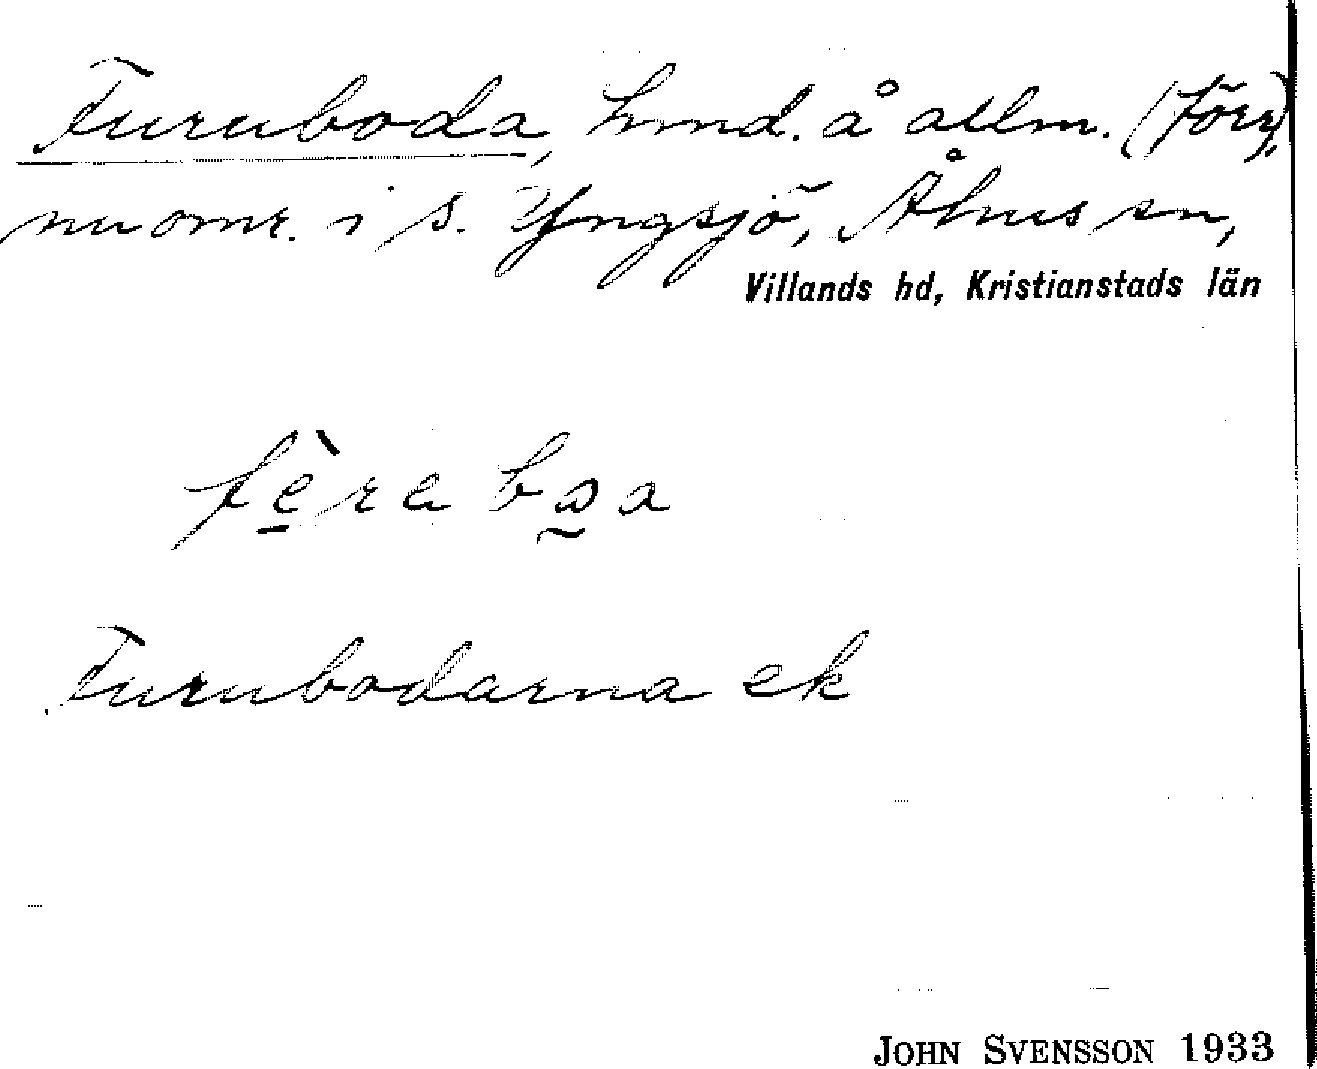 Furuboda, hmd. å allm. (förr),
nu omr. i s. Yngsjö, Åhus sn,
Villands hd, Kristianstads län
Furubodarna ek
JOHN SVENSSON 1933